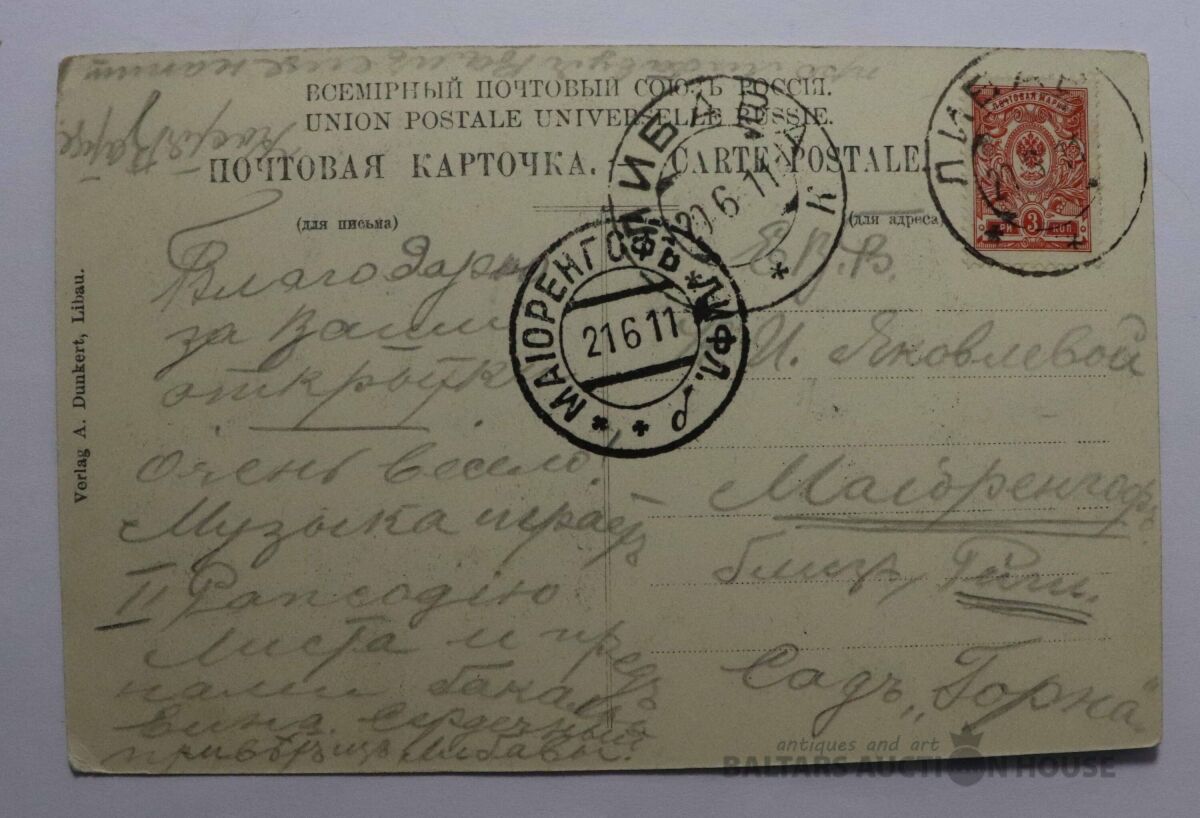 ВСЕМІРНЫЙ ПОЧТОВЫЙ СОЮЗЪ РОССІЯ.
UNION POSTALE UNIVERSELLE RUSSIE.
ПОЧТОВАЯ КАРТОЧКА. — CARTE POSTALE.
(для письма)
(для адреса)
Verlag A. Dunkert, Libau.
Благодарю
за Ваши
открытк
Очень весело!
Музыка играетъ
II Рапсодію
Листа и предъ
нами бокалъ
вина. Сердечный
привѣтъ изъ Либавы.
Е.В.В.
И. Яковлевой
Маіоренгофъ
близъ Риги.
Садъ „Горна“
ЛИБАВА
20 6 11
МАІОРЕНГОФЪ * ЛИФЛ. *
21 6 11
20
ПОЧТОВАЯ МАРКА
ТРИ 3 КОП
antiques and art
BALTARS AUCTION HOUSE